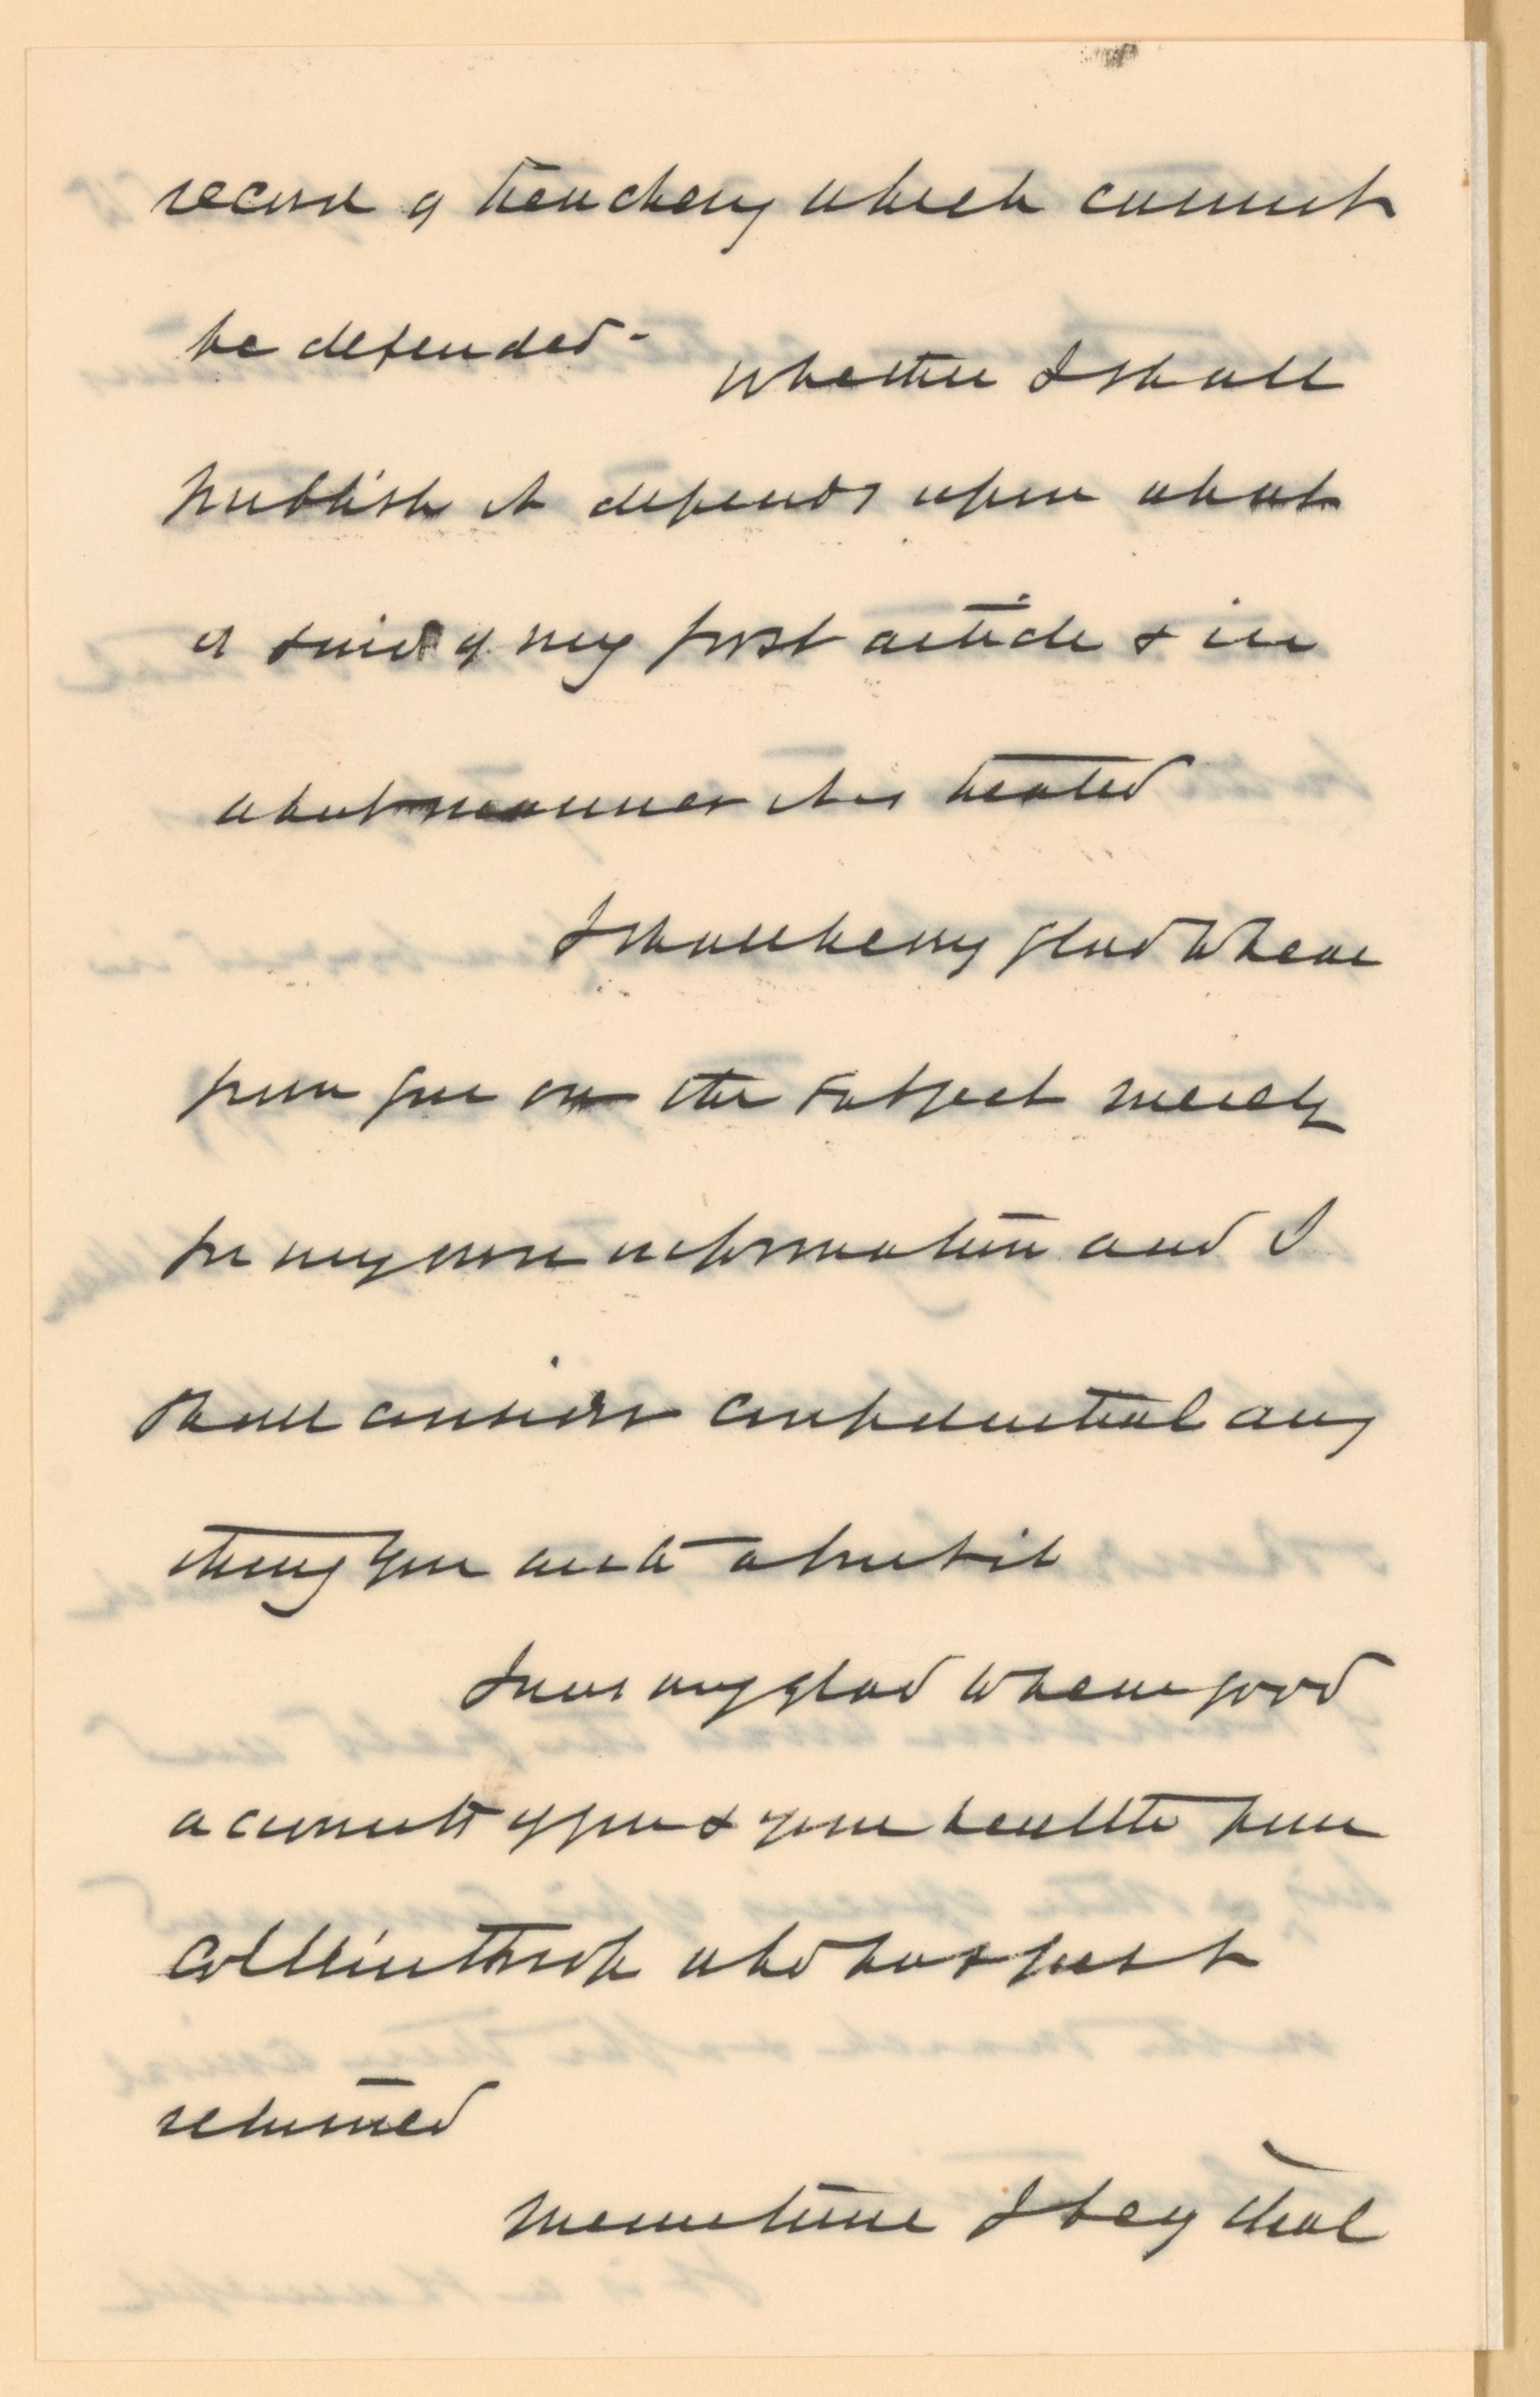 record of treachery which cannot
be defended -
Whether I shall
publish it depends upon what
is said of my first article & in
what manner it is treated
I shall be very glad to hear
from you on the subject merely
for my own information and I
shall consider confidential any
thing you write about it
I was very glad to hear good
accounts of you & your health from
Col Winthrop who has just
returned
Meantime I beg that